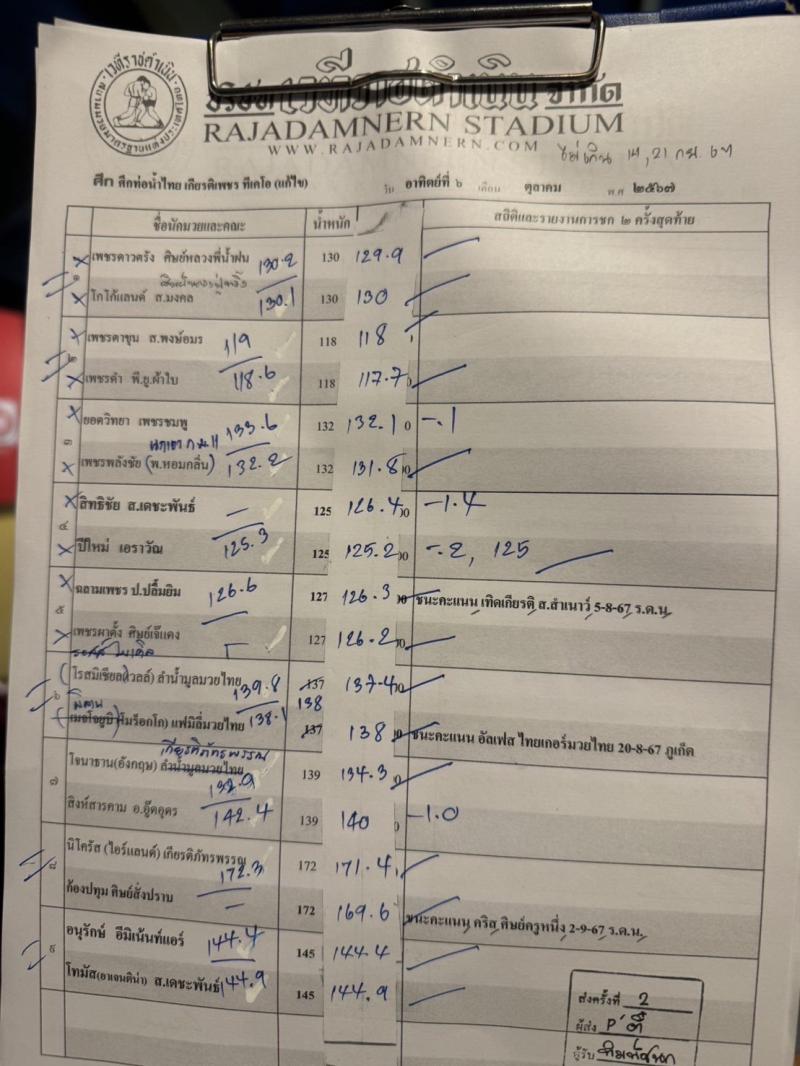 เวทีราชดำเนิน
บริษัท เวทีราชดำเนิน จำกัด
RAJADAMNERN STADIUM
WWW.RAJADAMNERN.COM
ไม่เกิน 14, 21 กย 67
ศึก ศึกท่อน้ำไทย เกียรติเพชร ทีเคโอ (แก้ไข) วัน อาทิตย์ที่ ๖ เดือน ตุลาคม พ.ศ ๒๕๖๗
ชื่อนักมวยและคณะ น้ำหนัก สถิติและรายงานการชก ๒ ครั้งสุดท้าย
๑ เพชรดาวตรัง ศิษย์หลวงพี่น้ำฝน 130.2 130 129.9
โกโก้แลนด์ ส.มงคล 130.1 130 130
๒ เพชรตาขุน ส.พงษ์อมร 119 118 118
เพชรดำ พี.ยู.ผ้าใบ 118.6 118 117.7
๓ ยอดวิทยา เพชรชมพู 133.6 132 132.1 -.1
เพชรพลังชัย (พ.หอมกลิ่น) 132.2 132 131.8
๔ สิทธิชัย ส.เดชะพันธ์ — 125 126.4 -1.4
ปีใหม่ เอราวัณ 125.3 125 125.2 -.2, 125
๕ ฉลามเพชร ป.ปลื้มยิม 126.6 127 126.3 ชนะคะแนน เทิดเกียรติ ส.สำเนาว์ 5-8-67 ร.ด.น.
เพชรผาตั้ง ศิษย์เจ๊แดง 127 126.2
๖ ลำน้ำมูลมวยไทย 139.8 137 137.4
138
(โมร็อกโก) แฟมิลี่มวยไทย 138.1 137 138 ชนะคะแนน อัลเฟส ไทเกอร์มวยไทย 20-8-67 ภูเก็ต
เกียรติภัทรพรรณ
๗ โจนาธาน(อังกฤษ) ลำน้ำมูลมวยไทย 132.9 139 134.3
สิงห์สารคาม อ.อู๊ดอุดร 142.4 139 140 -1.0
๘ นิโครัส (ไอร์แลนด์) เกียรติภัทรพรรณ 172.3 172 171.4
ก้องปทุม ศิษย์สั่งปราบ — 172 169.6 ชนะคะแนน คริส ศิษย์ครูหนึ่ง 2-9-67 ร.ด.น.
๙ อนุรักษ์ อีมิเน้นท์แอร์ 144.4 145 144.4
โทมัส(อาเจนติน่า) ส.เดชะพันธ์ 144.9 145 144.9
ส่งครั้งที่ 2
ผู้ส่ง P'ตี๋
ผู้รับ